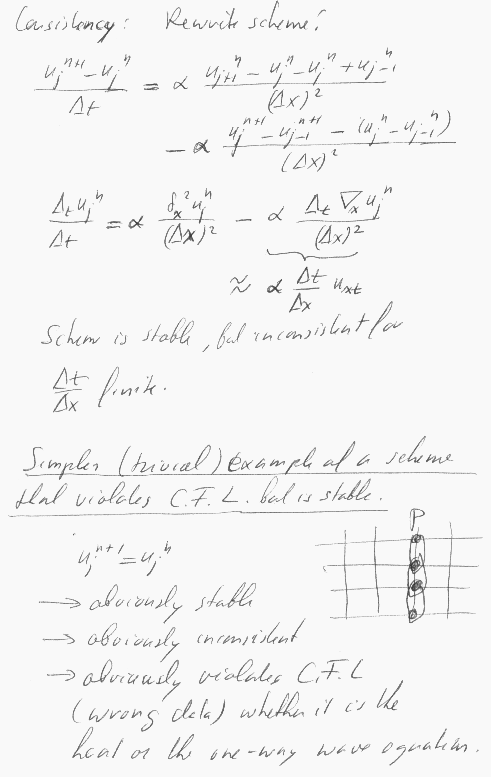 Consistency: Rewrite scheme:
(u_j^{n+1} - u_j^n)/Δt = α (u_{j+1}^n - u_j^n - u_j^n + u_{j-1}^n)/(Δx)^2
- α (u_j^{n+1} - u_{j-1}^{n+1} - (u_j^n - u_{j-1}^n))/(Δx)^2
Δ_t u_j^n/Δt = α δ_x^2 u_j^n/(Δx)^2 - α Δ_t ∇_x u_j^n/(Δx)^2
≈ α Δt/Δx u_{xt}
Scheme is stable, but inconsistent for
Δt/Δx finite.
Simpler (trivial) example of a scheme
that violates C.F.L. but is stable.
P
u_j^{n+1} = u_j^n
→ obviously stable
→ obviously inconsistent
→ obviously violates C.F.L
(wrong data) whether it is the
heat or the one-way wave equation.